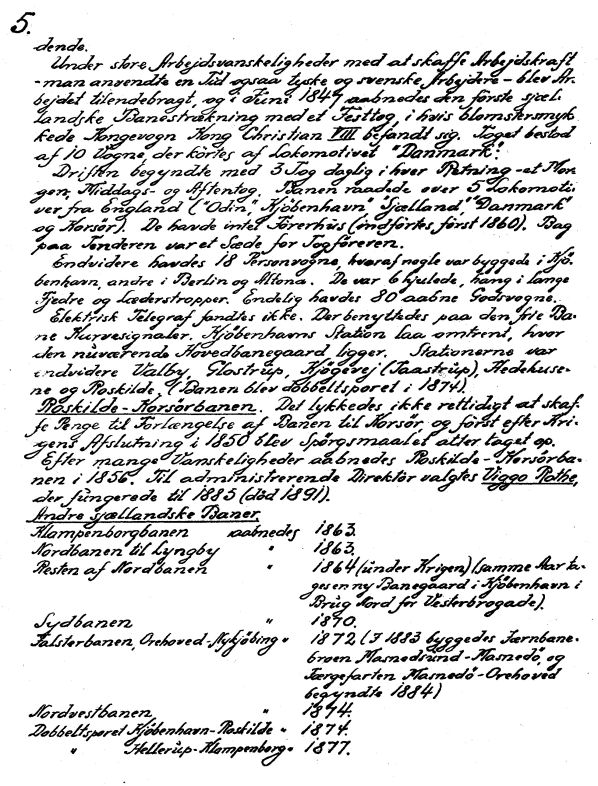 5.
dende.
Under store Arbejdsvanskeligheder med at skaffe Arbejdskraft
-man anvendte en Tid ogsaa tyske og svenske Arbejdere - blev Ar-
bejdet tilendebragt, og i Juni 1847 aabnedes den første sjæl-
landske Banestrækning med et Festtog, i hvis blomstersmyk
kede Kongevogn Kong Christian VIII befandt sig. Toget bestod
af 10 Vogne, der kørtes af Lokomotivet "Danmark".
Driften begyndte med 3 Tog daglig i hver Retning - et Mor-
gen, Middags- og Aftentog. Banen raadede over 5 Lokomoti
ver fra England ("Odin", Kjöbenhavn" "Sjælland", "Danmark"
og Korsör). De havde intet Förerhus (indførtes først 1860). Bag
paa Tenderen var et Sæde for Togføreren.
Endvidere havdes 18 Personvogne, hvoraf nogle var byggede i Kjö-
benhavn, andre i Berlin og Altona. De var 6 hjulede, hang i lange
Fjedre og Læderstropper. Endelig havdes 80 aabne Godsvogne.
Elektrisk Telegraf fandtes ikke. Der benyttedes paa den frie Ba-
ne Kurvesignaler. Kjöbenhavns Station laa omtrent, hvor
den nuværende Hovedbanegaard ligger. Stationerne var
endvidere Valby, Glostrup, Kjögevej (Taastrup), Hedehuse-
ne og Roskilde, (Banen blev dobbeltsporet i 1874).
Roskilde-Korsörbanen. Det lykkedes ikke rettidigt at skaf-
fe Penge til Forlængelse af Banen til Korsör, og först efter Kri-
gens Afslutning i 1850 blev Spörgsmaalet atter taget op.
Efter mange Vanskeligheder aabnedes Roskilde-Korsörba-
nen i 1856. Til administrerende Direktör valgtes Viggo Rothe,
der fungerede til 1885 (död 1891).
Andre sjællandske Baner.
Klampenborgbanen aabnedes 1863.
Nordbanen til Lyngby " 1863.
Resten af Nordbanen " 1864 (under Krigen) (samme Aar ta-
ges en ny Banegaard i Kjöbenhavn i
Brug Nord for Vesterbrogade).
Sydbanen " 1870.
Falsterbanen, Orehoved-Nykjöbing " 1872 (I 1883 byggedes Jernbane-
broen Masnedsund-Masnedö, og
Færgefarten Masnedö-Orehoved
begyndte 1884)
Nordvestbanen " 1874.
Dobbeltsporet Kjöbenhavn-Roskilde " 1874.
" Hellerup-Klampenborg " 1877.